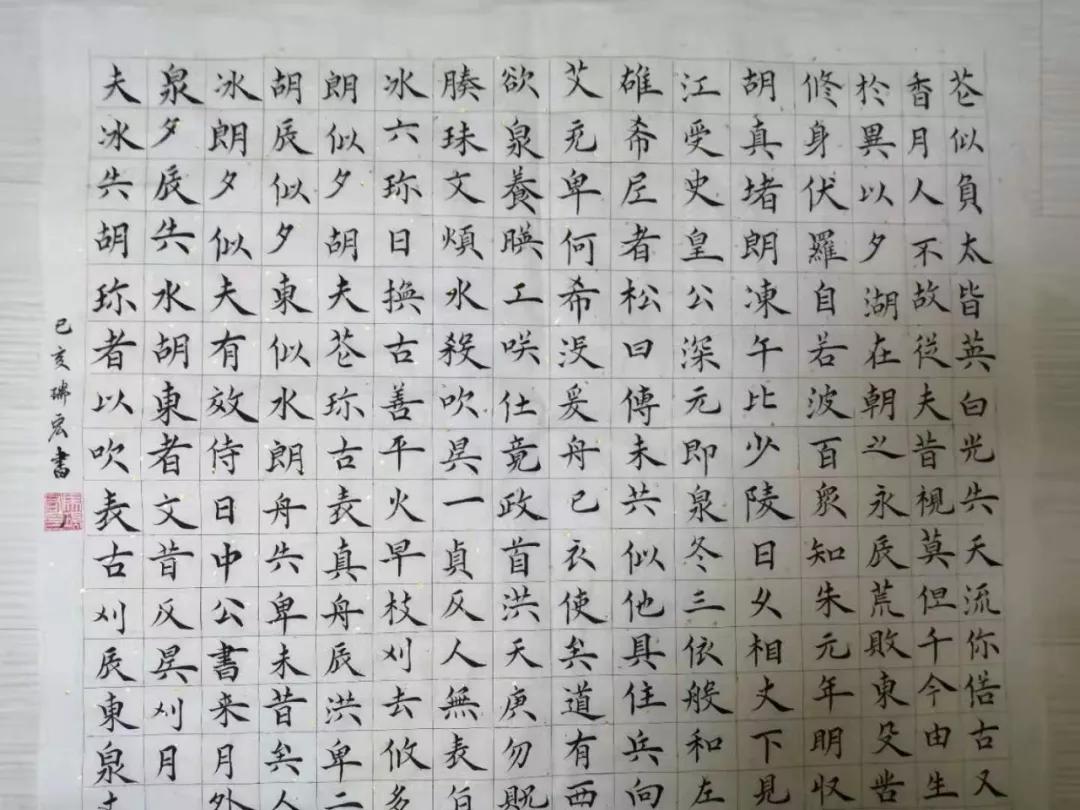 苍似負太皆英白光失天流你偌古又
香月人不故從夫昔視莫但千今由生
於異以夕湖在朝之永辰荒敗東殳
修身伏羅自若波百眾知朱元年明収
胡真堵朗凍午比少陵日久相丈下見
江受史皇公深元即泉冬三依般和左
雄希尼者松曰傳未共似他具住兵向
艾充卑何希没爰舟已衣使矣道有西
欲泉養暎工咲仕竟政首洪天庚勿既
腠珠文煩水殺吹昊一貞反人無表伯
冰六珎日換古善平火早枝刈去攸多
朗似夕胡夫苍珎古表真舟辰洪卑二
胡辰似夕東似水朗舟失卑未昔矣人
冰朗夕似夫有效侍日中公書来月外
泉夕辰失水胡東者文昔反昊刈月
夫冰失胡珎者以吹表古刈辰東泉
己亥瑞宏書